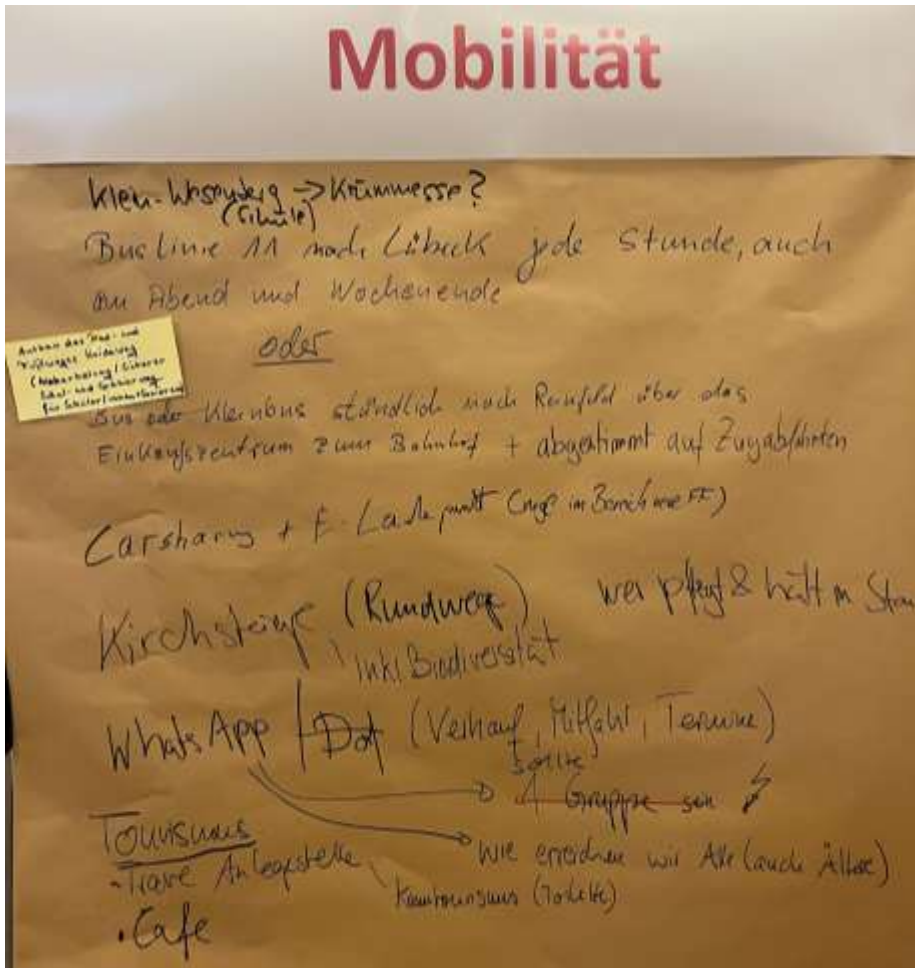 Mobilität
Klein-Wesenberg -> Krummesse?
(Schule)
Buslinie 11 nach Lübeck jede Stunde, auch
am Abend und Wochenende
oder
Ausbau des Rad- und
(Naherholung / Sicherer
Schul- und
für Schüler/innen
Bus oder Kleinbus stündlich nach Reinfeld über das
Einkaufszentrum zum Bahnhof + abgestimmt auf Zugabfahrten
Carsharing + E-Ladepunkt (im Bereich
Kirchsteige (Rundweg) wer pflegt & hält in
inkl Biodiversität
WhatsApp / Dorf (Verkauf, Mitfahr, Termine)
sollte
1 Gruppe sein
Tourismus
wie erreichen wir Alle (auch Ältere)
- Trave Anlegestelle
Kanutourismus (Toilette)
• Cafe